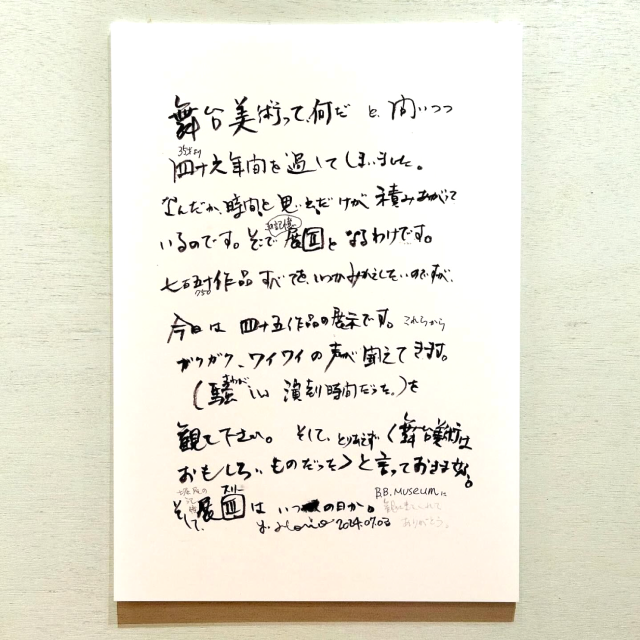 舞台美術って、何だ と、問いつつ
四十六年間を過してしまいました。
なんだか、時間と思い出だけが積みあがって
いるのです。そこで展Ⅱとなるわけです。
七百五十作品すべてを、いつかみかえしたいのですが、
750
今日は四十五作品の展示です。これらから
ガヤガヤ、ワイワイの声が聞えてきます。
(騒がしい演劇時間だった。)を
さわが
観て下さい。そして、とりあえず〈舞台美術は
おもしろいものだった〉と言っておきます。
そして、展Ⅲはいつの日か。
B.B.Museumに
ありがとう。
2024.07.03